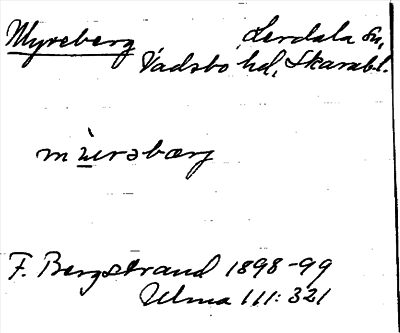 Myreberg Lerdala sn,
Vadsbo hd, Skarabl.
F. Bergstrand 1898-99
Ulma 111:321